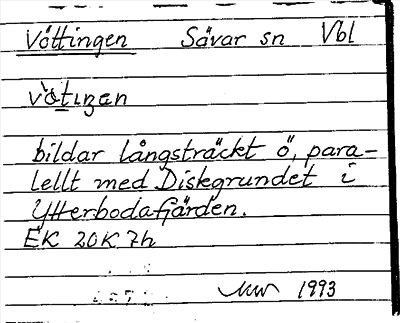 Vöttingen Sävar sn Vbl
vö̀tıŋen
bildar långsträckt ö, para-
lellt med Diskgrundet i
Ytterbodafjärden.
EK 20K 7h
1993